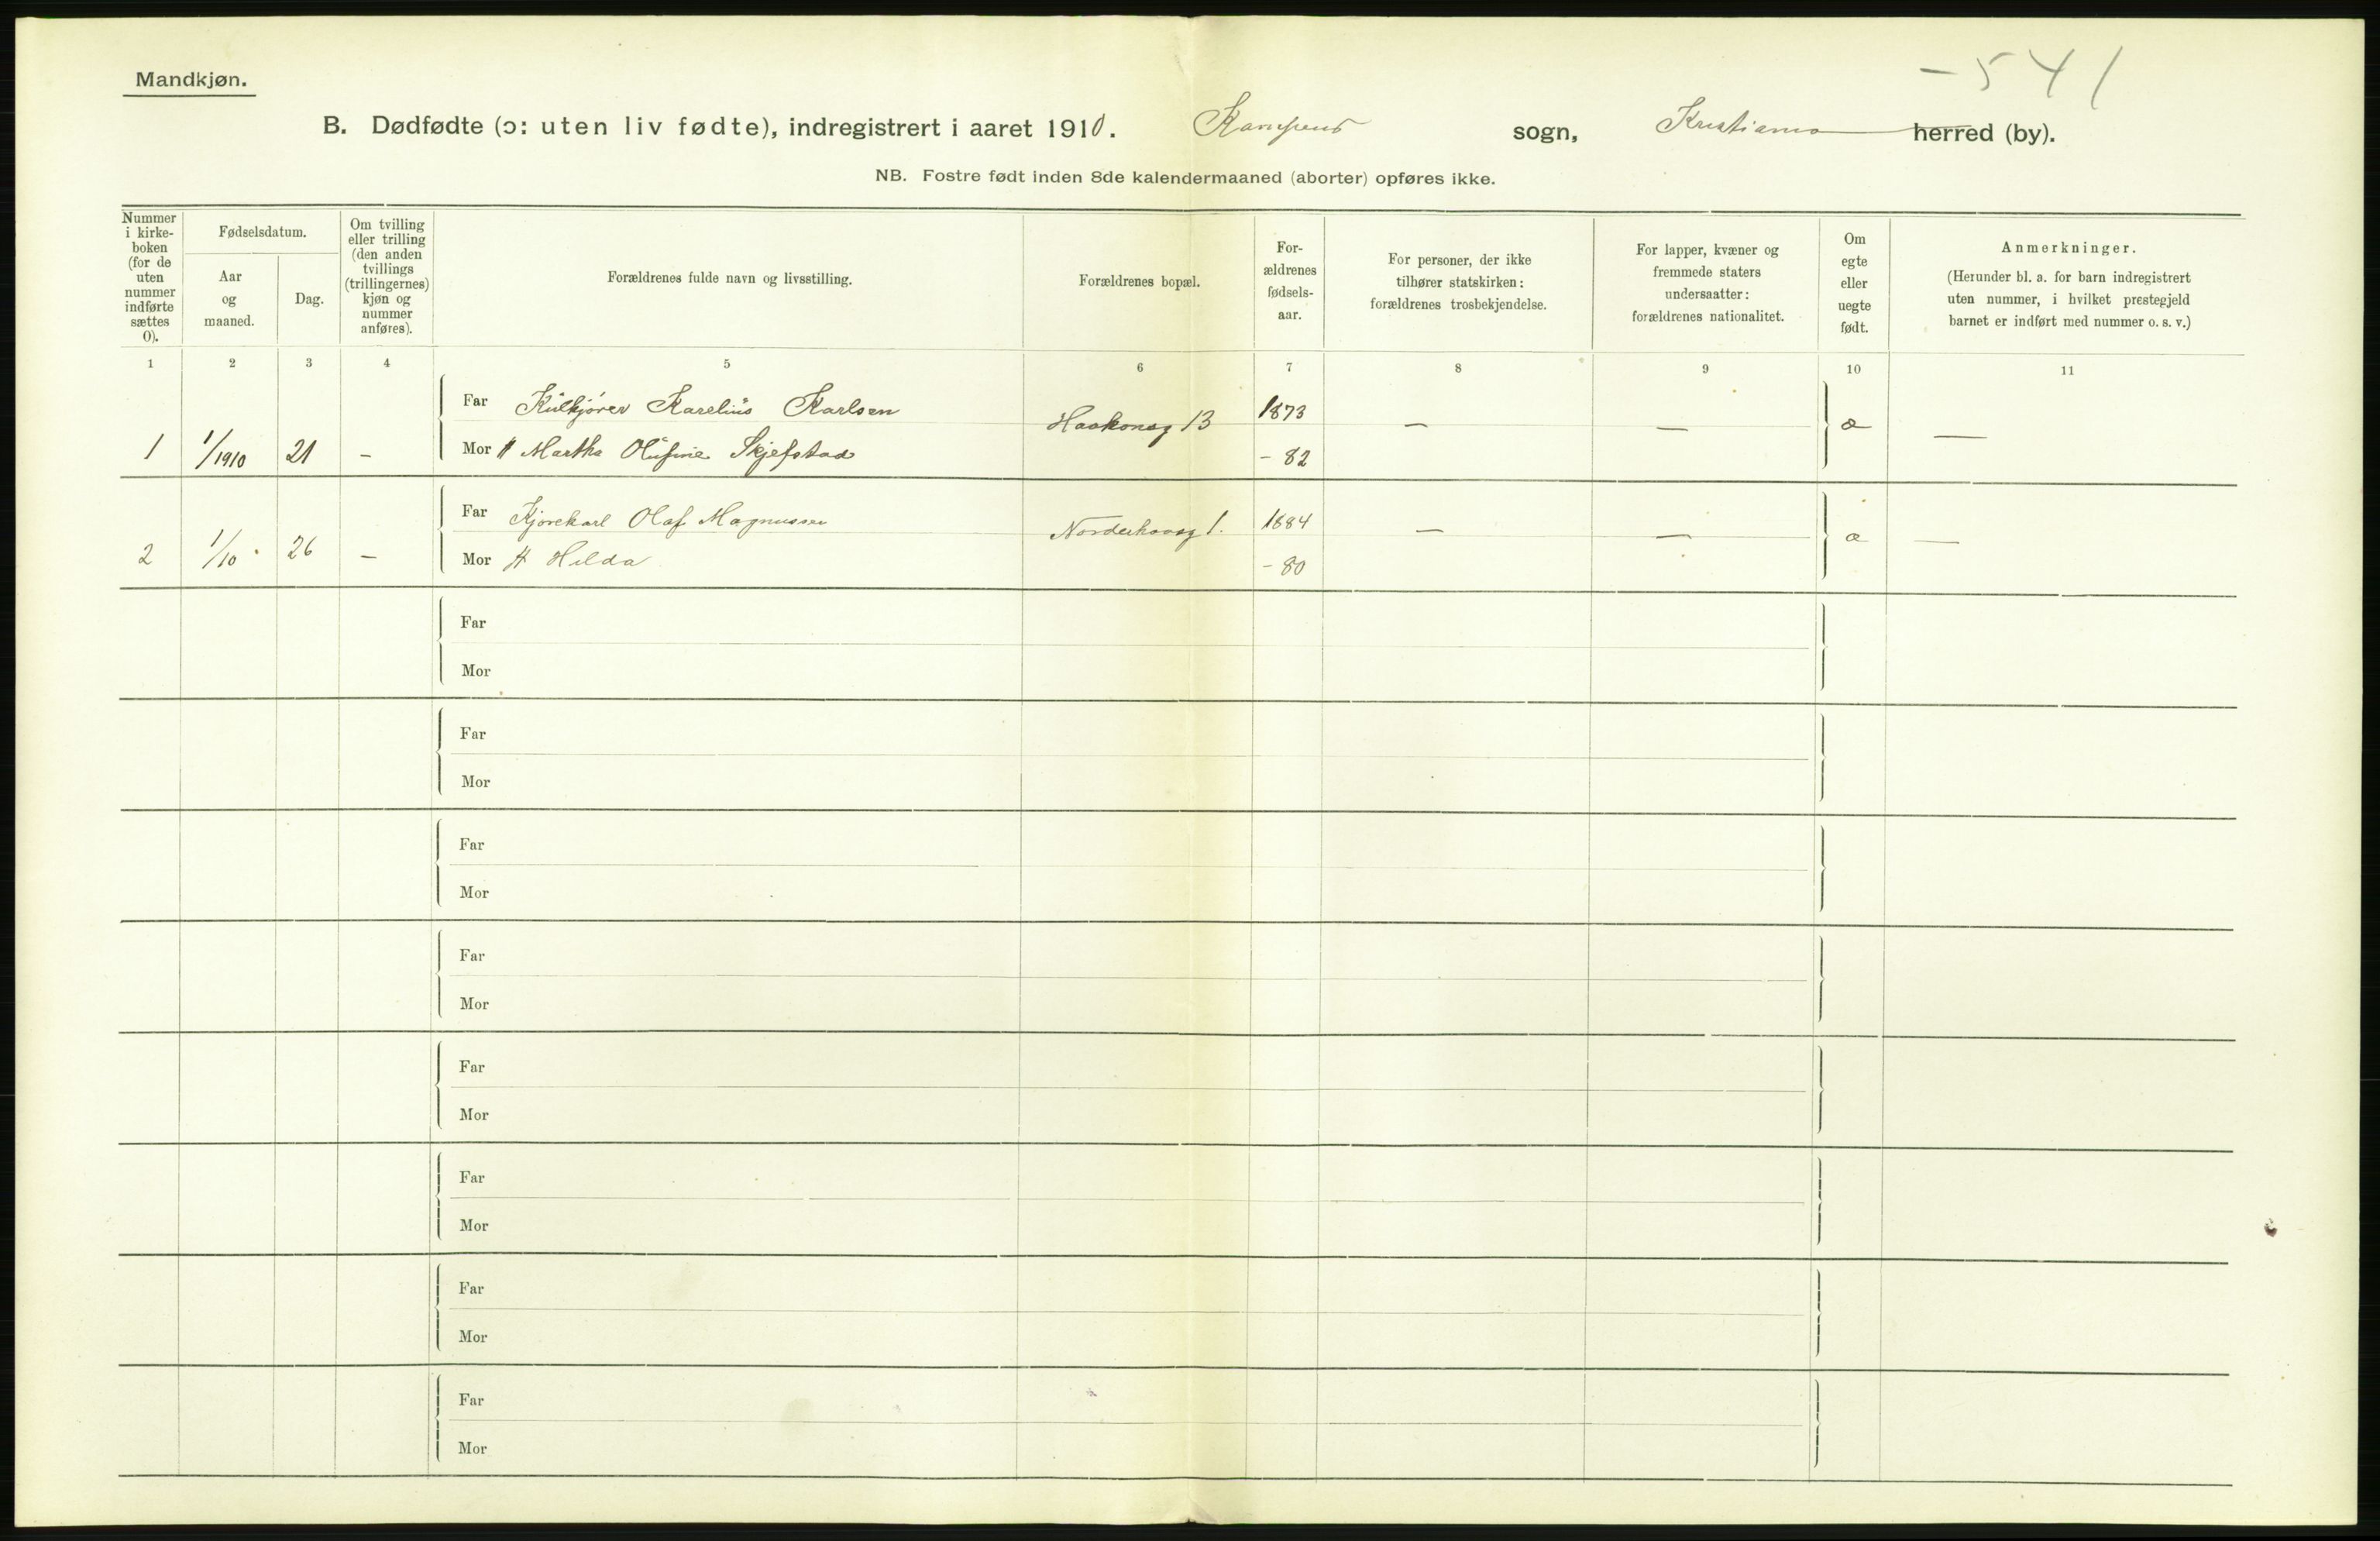 -541
Mandkjøn.
B. Dødfødte (ɔ: uten liv fødte), indregistrert i aaret 1910. Kampens sogn, Kristiania herred (by).
NB. Fostre født inden 8de kalendermaaned (aborter) opføres ikke.
Nummer i kirke-boken (for de uten nummer indførte sættes 0).
Fødselsdatum.
Aar og maaned.
Dag.
Om tvilling eller trilling (den anden tvillings (trillingernes) kjøn og nummer anføres).
Forældrenes fulde navn og livsstilling.
Forældrenes bopæl.
For-ældrenes fødsels-aar.
For personer, der ikke tilhører statskirken: forældrenes trosbekjendelse.
For lapper, kvæner og fremmede staters undersaatter: forældrenes nationalitet.
Om egte eller uegte født.
Anmerkninger.
(Herunder bl. a. for barn indregistrert uten nummer, i hvilket prestegjeld barnet er indført med nummer o. s. v.)
1 2 3 4 5 6 7 8 9 10 11
Far Kulkjører Karelius Karlsen Haakonsg 13 1873 — — æ —
1 1/1910 21 – Mor H Martha Olufine Skjefstad - 82
Far Kjørekarl Olaf Magnussen Norderhovsg 1. 1884 — — æ —
2 1/10 26 – Mor H Hilda - 80
Far
Mor
Far
Mor
Far
Mor
Far
Mor
Far
Mor
Far
Mor
Far
Mor
Far
Mor